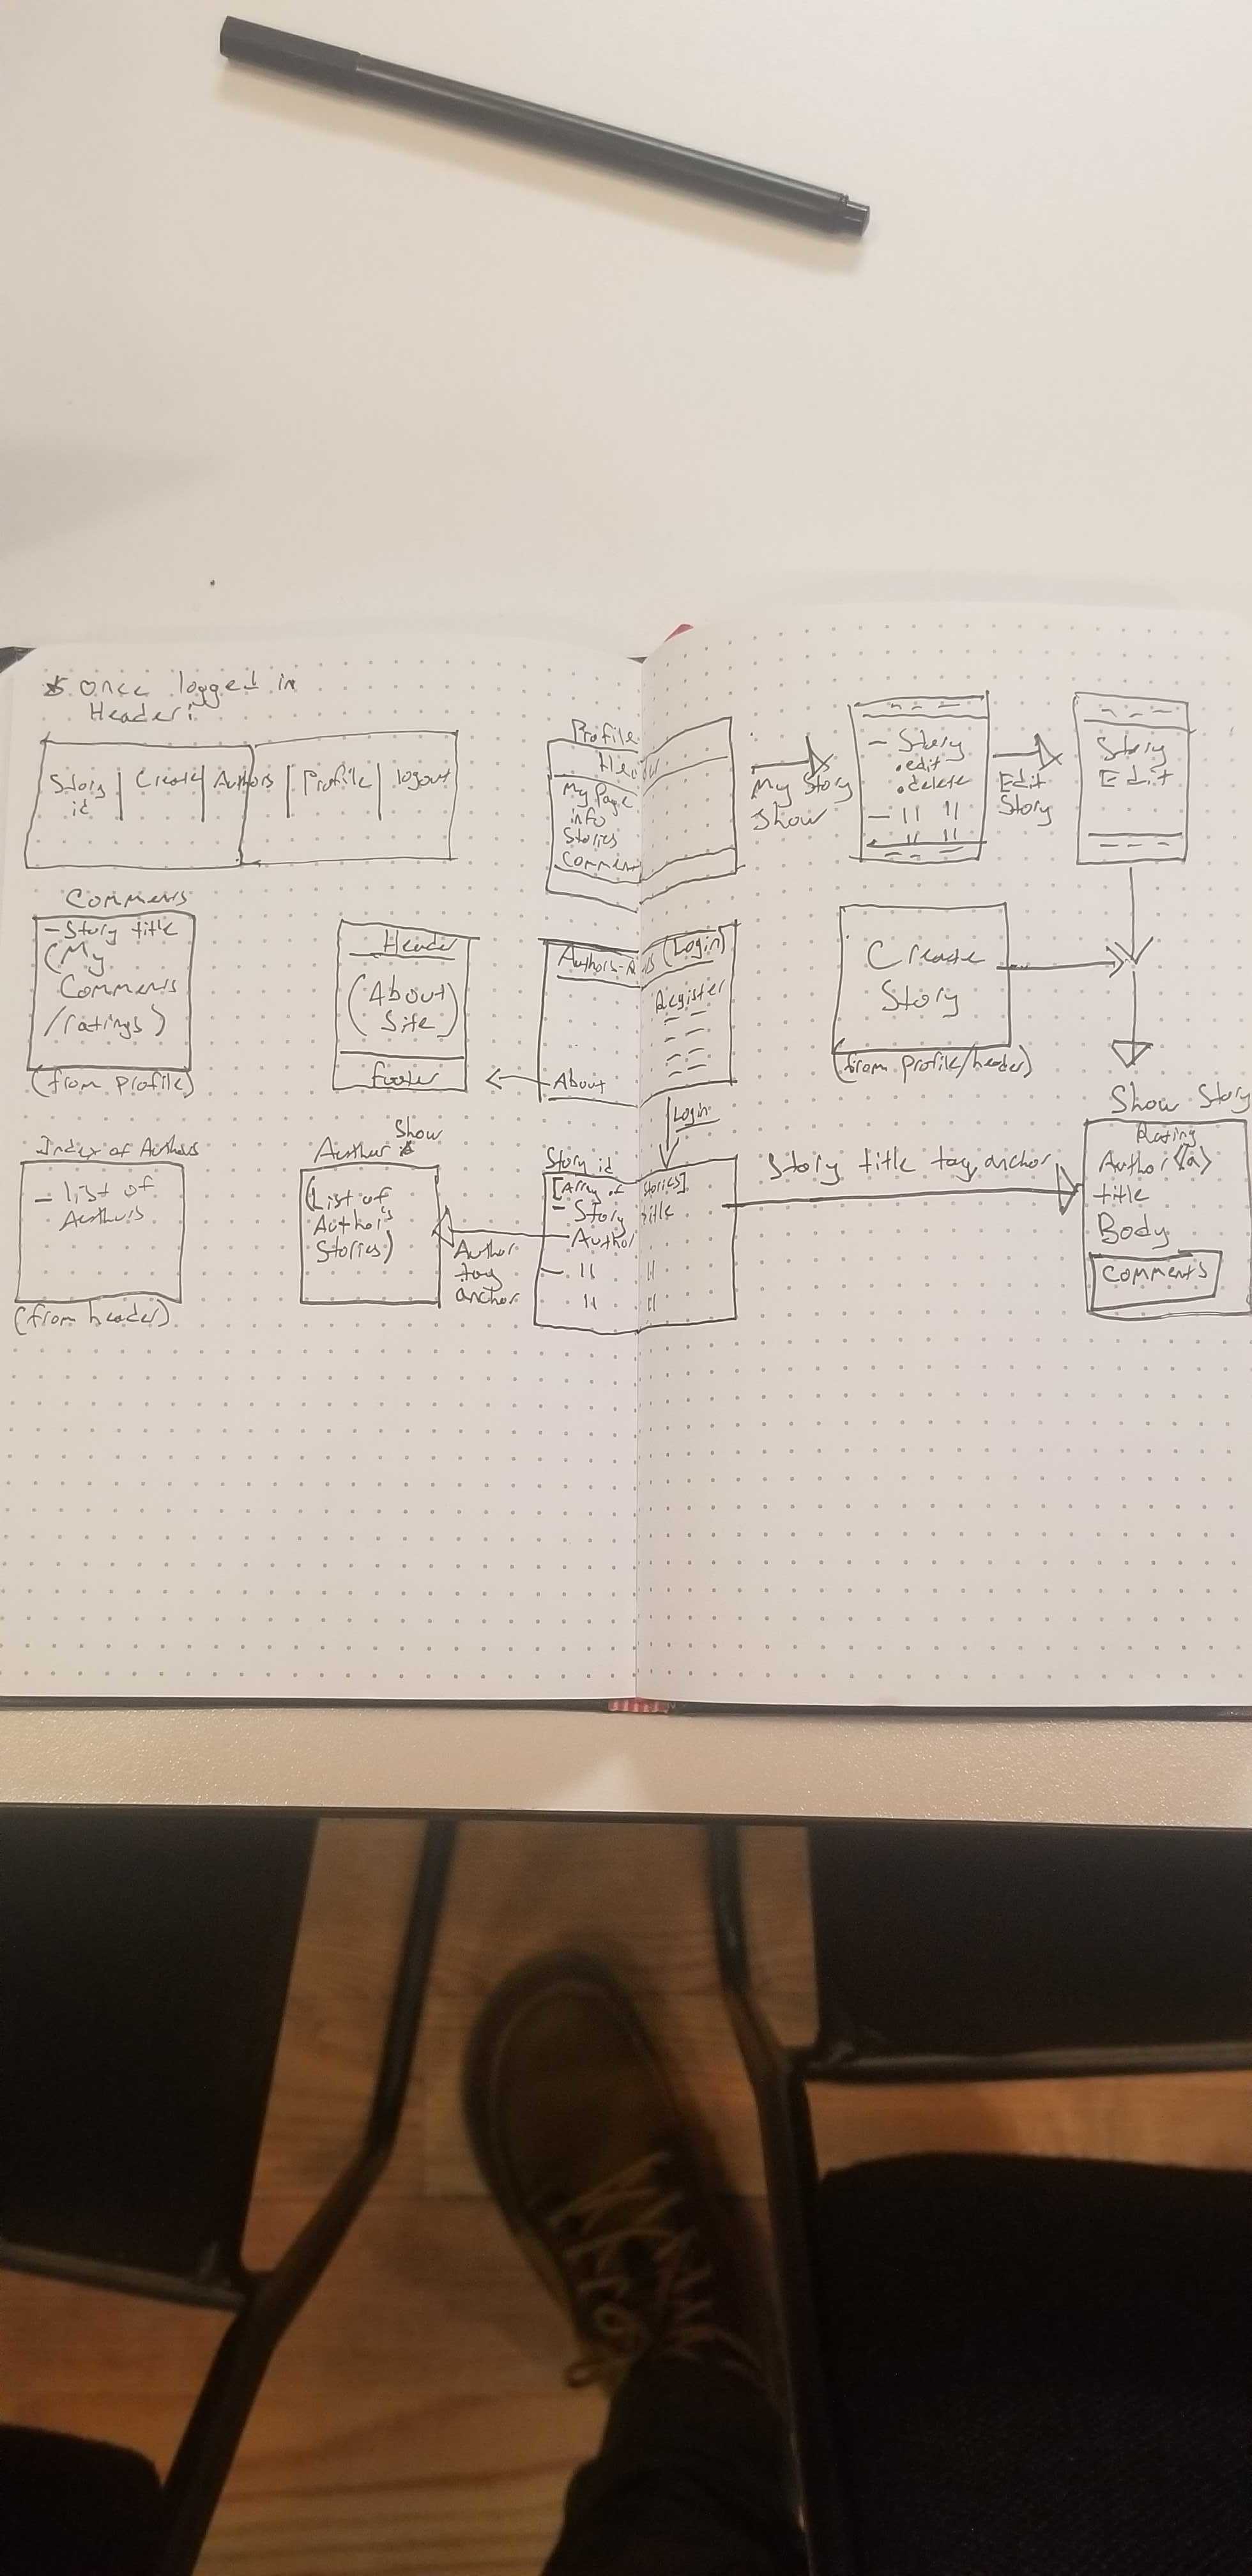 * Once logged in
Header:
Story id | Create | Authors | Profile | logout
Profile
My Page
info
Stories
Comment
My Story
Show
- Story
.edit
.delete
- 11 11
11 11
Edit
Story
Story
Edit
Comments
- Story title
(My
Comments
/ratings)
(from profile)
Header
(About
Site)
footer
(Login)
Register
About
Login
Create
Story
(from profile/header)
Index of Authors
- list of
Authors
(from header)
Author Show
(List of
Author's
Stories)
Author
tag
anchor
Story id
[Array of Stories]
- Story title
- Author
- 11 11
11 11
Story title tag anchor
Show Story
Rating
Author (a)
title
Body
Comments